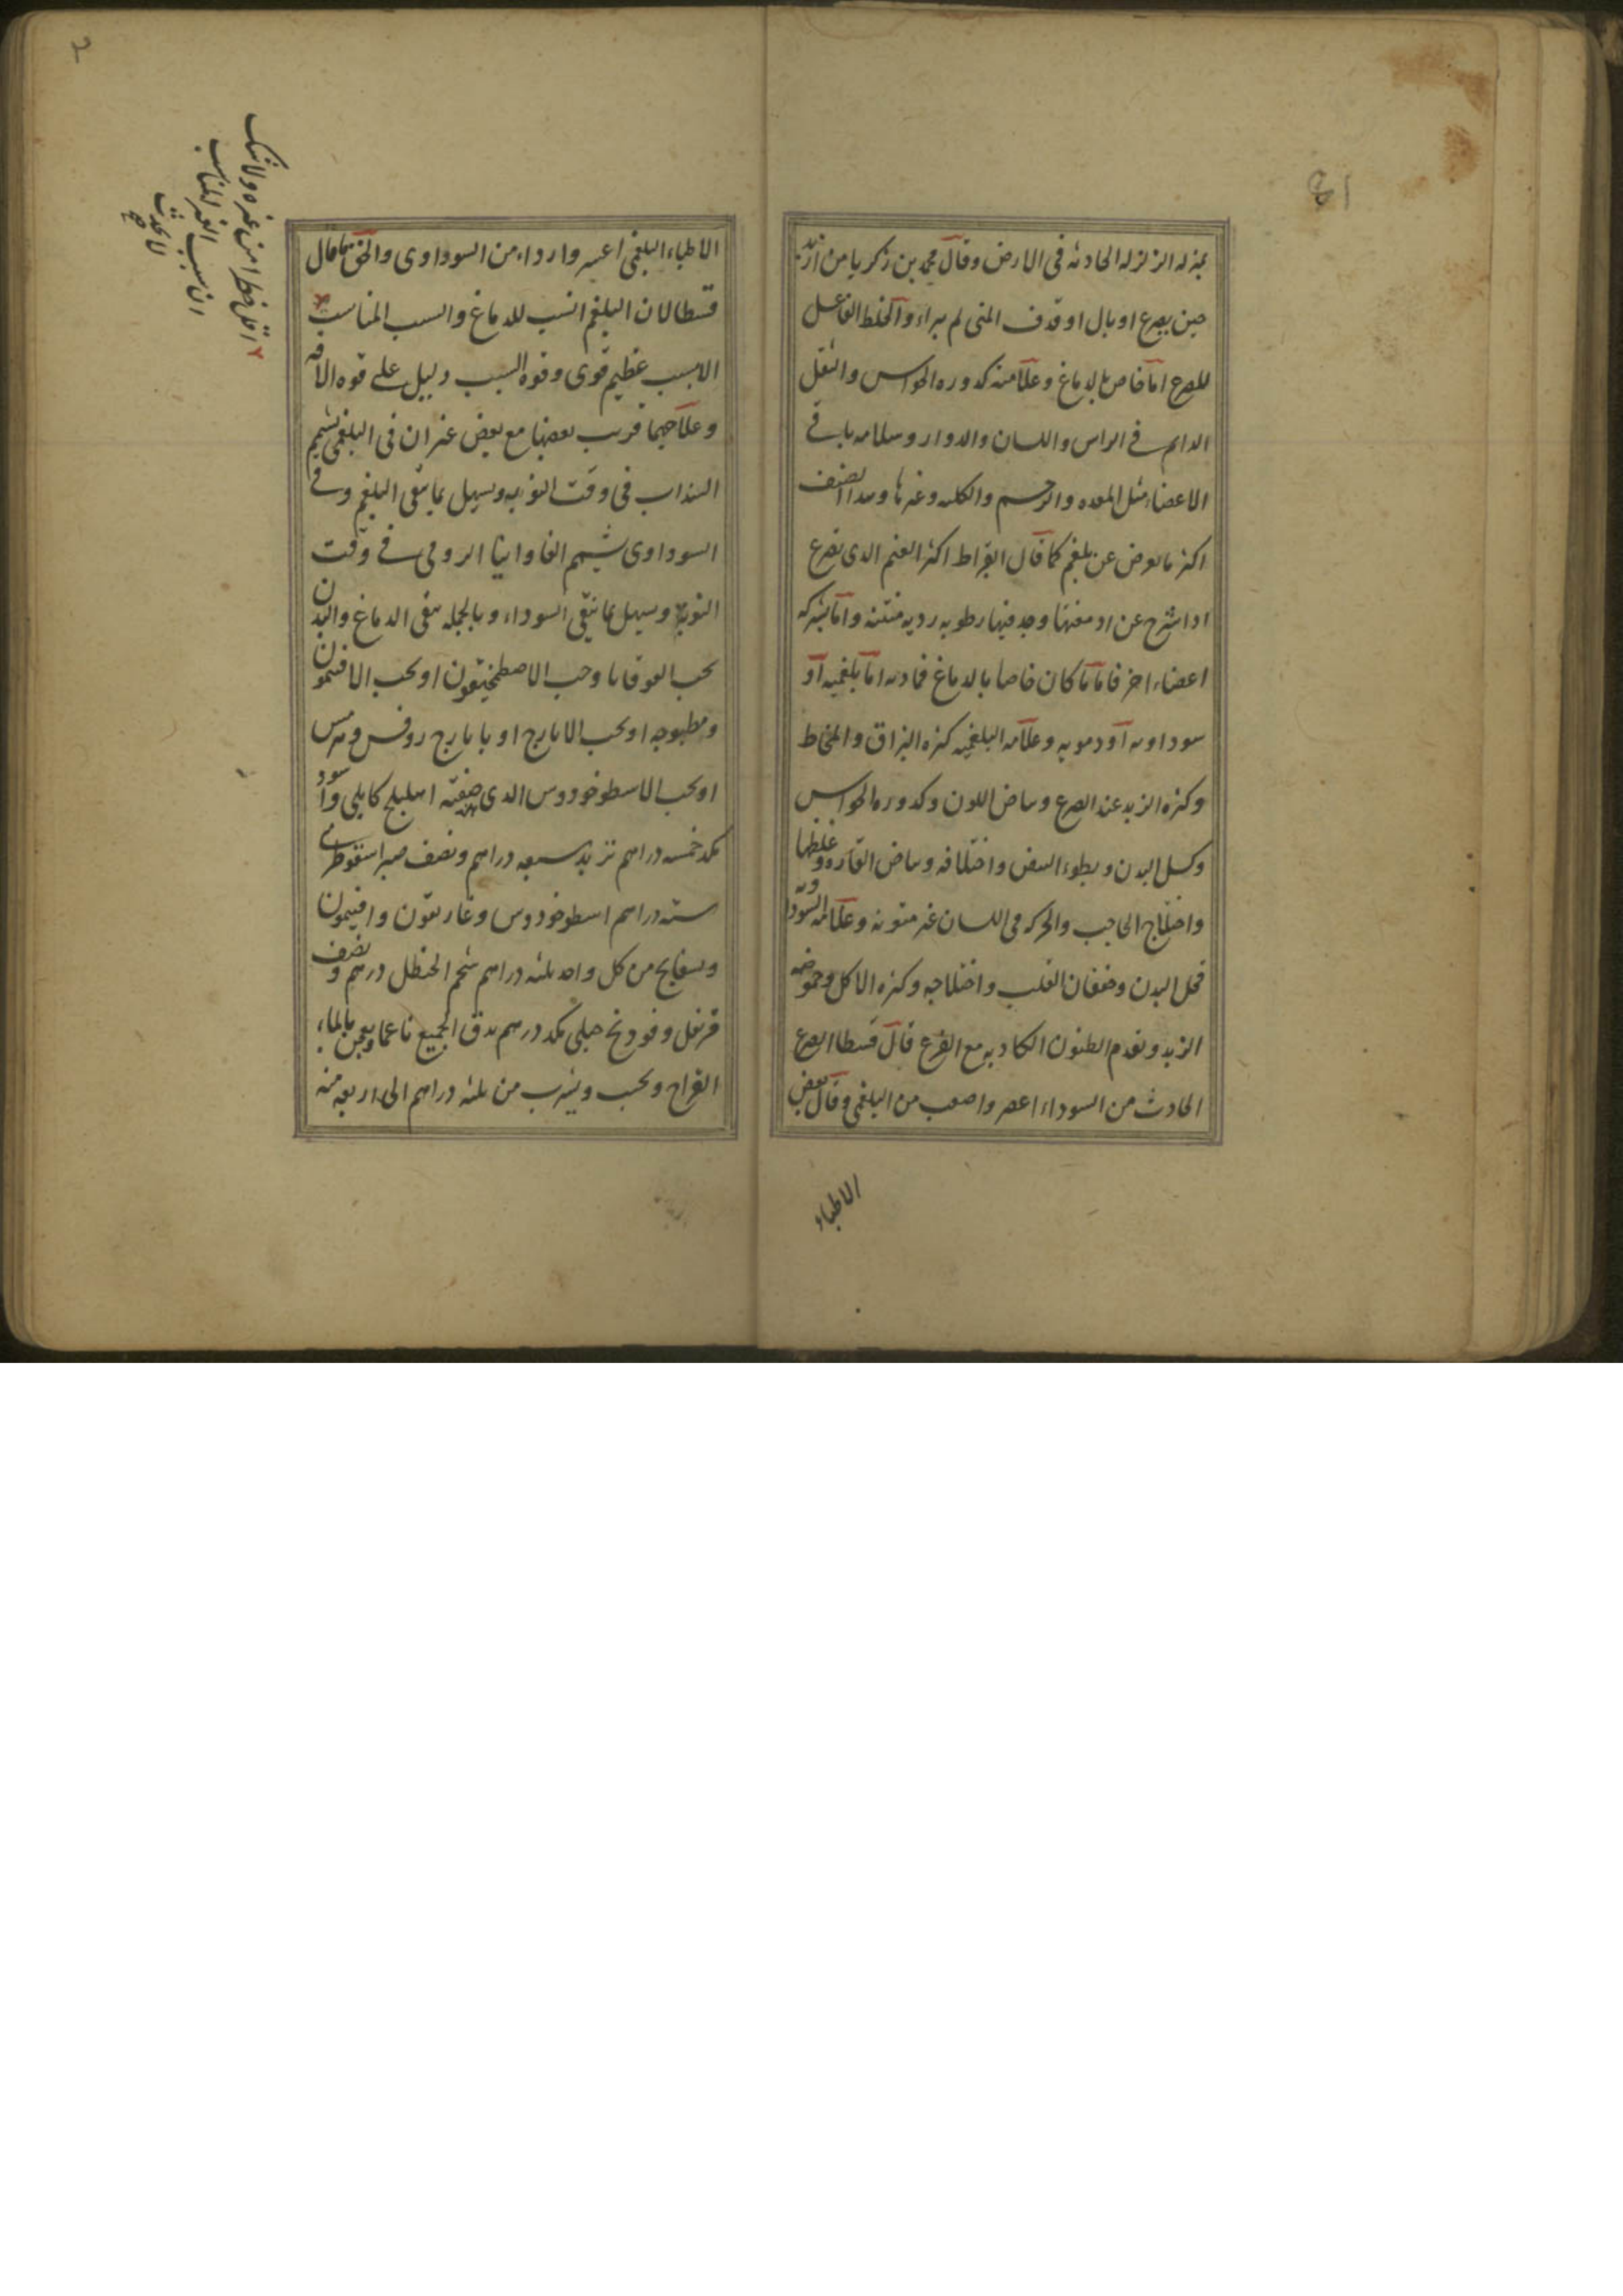 بمنزله الزلزله الحادثه فى الارض وقال محمد بن زكريا من ازبد
حين يصرع او بال او قذف المنى لم يبراء والخلط الفاعل
للصرع اما خاص بالدماغ وعلامته كدوره الحواس والثقل
الدايم فى الراس واللسان والدوار وسلامه باقى
الاعضاء مثل المعده والرحم والكليه وغيرها وهذا الصنف
اكثر ما يعرض عن بلغم كما قال ابقراط اكثر الغنم الذى تصرع
اذا شرح عن ادمغتها وجد فيها رطوبه رديه منتنه واما بشركه
اعضاء اخر فاما ما كان خاصا بالدماغ فمادته اما بلغميه او
سوداويه او دمويه وعلامه البلغميه كثره البزاق والمخاط
وكثره الزبد عند الصرع وبياض اللون وكدوره الحواس
وكسل البدن وبطوء النبض واختلافه وبياض القاروره وغلظها
واختلاج الحاجب والحركه فى اللسان غير متونه وعلامه السوداويه
قحل البدن وخفقان القلب واختلاجه وكثره الاكل وحموضه
الزبد وتقدم الظنون الكاذبه مع الفزع قال قسطا الصرع
الحادث من السوداء اعسر واصعب من البلغمى وقال بعض
الاطباء
الاطباء البلغمى اعسر وارداء من السوداوى والحق ما قال
قسطا لان البلغم انسب للدماغ والسبب المناسب
الا بسبب عظيم قوى وقوه السبب دليل على قوه الافه
وعلاجهما قريب بعضها مع بعض غير ان فى البلغمى يشمم
السذاب فى وقت النوبه ويسهل بما ينقى البلغم وفى
السوداوى يشمم الفاوانيا الرومى فى وقت
النوبه ويسهل بما ينقى السوداء وبالجمله ينقى الدماغ والبدن
بحب القوقايا وحب الاصطمخيقون او بحب الافتيمون
ومطبوخه او بحب الايارج او بايارج روفس وهرمس
او بحب الاسطوخودوس الذى صفته اهليلج كابلى واسود
مكد خمسه دراهم تربد سبعه دراهم ونصف صبر اسقوطرى
سته دراهم اسطوخودوس وغاريقون وافتيمون
وبسفايج من كل واحد ثلثه دراهم شحم الحنظل درهم ونصف
قرنفل وفودنج جبلى مكد درهم يدق الجميع ناعما ويعجن بالماء
القراح ويحبب ويشرب من ثلثه دراهم الى اربعه منه
اقل خطرا من غيره ولا شك
ان سبب الغير المناسب
لا يحدث